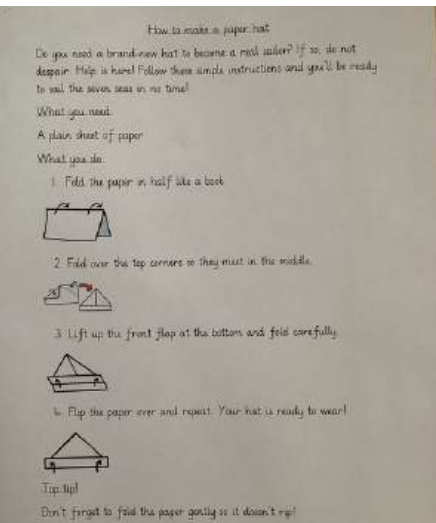 How to make a paper hat
Do you need a brand-new hat to become a real sailor? If so, do not
despair. Help is here! Follow these simple instructions and you'll be ready
to sail the seven seas in no time!
What you need:
A plain sheet of paper
What you do:
1. Fold the paper in half like a book.
2. Fold over the top corners so they meet in the middle.
3. Lift up the front flap at the bottom and fold carefully.
4. Flip the paper over and repeat. Your hat is ready to wear!
Top tip!
Don't forget to fold the paper gently so it doesn't rip!